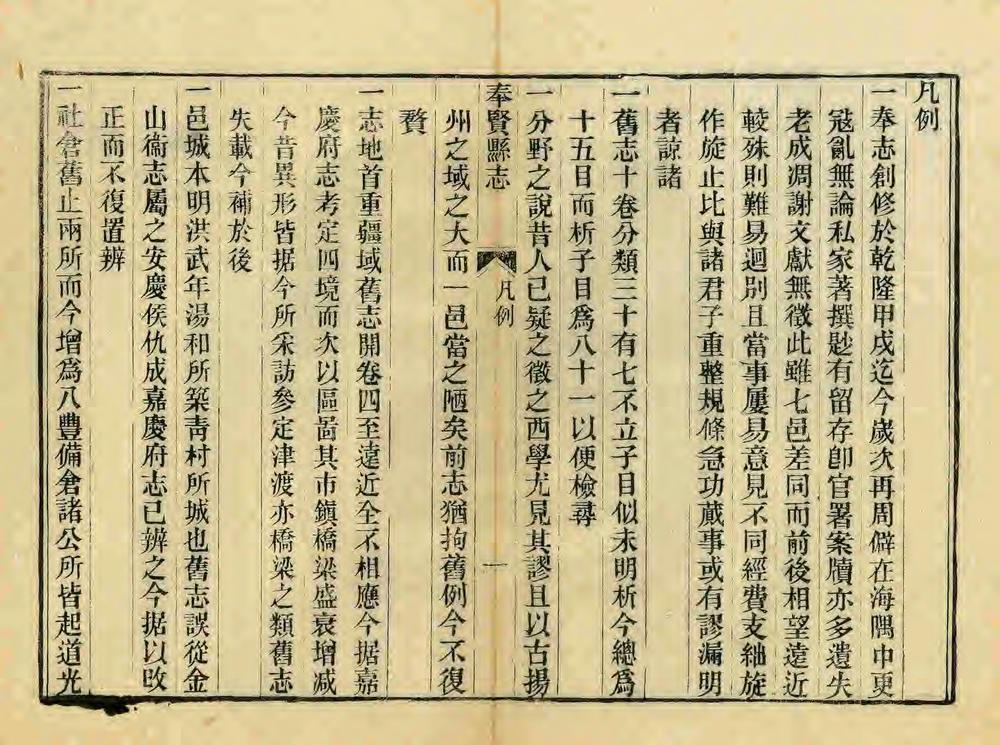 凡例
一奉志創修於乾隆甲戌迄今歲次再周僻在海隅中更
寇亂無論私家著撰尟有留存卽官署案牘亦多遺失
老成凋謝文獻無徵此雖七邑差同而前後相望遠近
較殊則難易迥別且當事屢易意見不同經費支絀旋
作旋止比與諸君子重整規條急功蕆事或有謬漏明
者諒諸
一舊志十卷分類三十有七不立子目似未明析今總爲
十五目而析子目爲八十一以便檢尋
一分野之說昔人已疑之徵之西學尤見其謬且以古揚
奉賢縣志
凡例
一
州之域之大而一邑當之陋矣前志猶拘舊例今不復
贅
一志地首重疆域舊志開卷四至遠近全不相應今据嘉
慶府志考定四境而次以區啚其市鎭橋梁盛衰增减
今昔異形皆据今所采訪參定津渡亦橋梁之類舊志
失載今補於後
一邑城本明洪武年湯和所築靑村所城也舊志誤從金
山衞志屬之安慶侯仇成嘉慶府志已辨之今据以改
正而不復置辨
一社倉舊止兩所而今增爲八豐備倉諸公所皆起道光